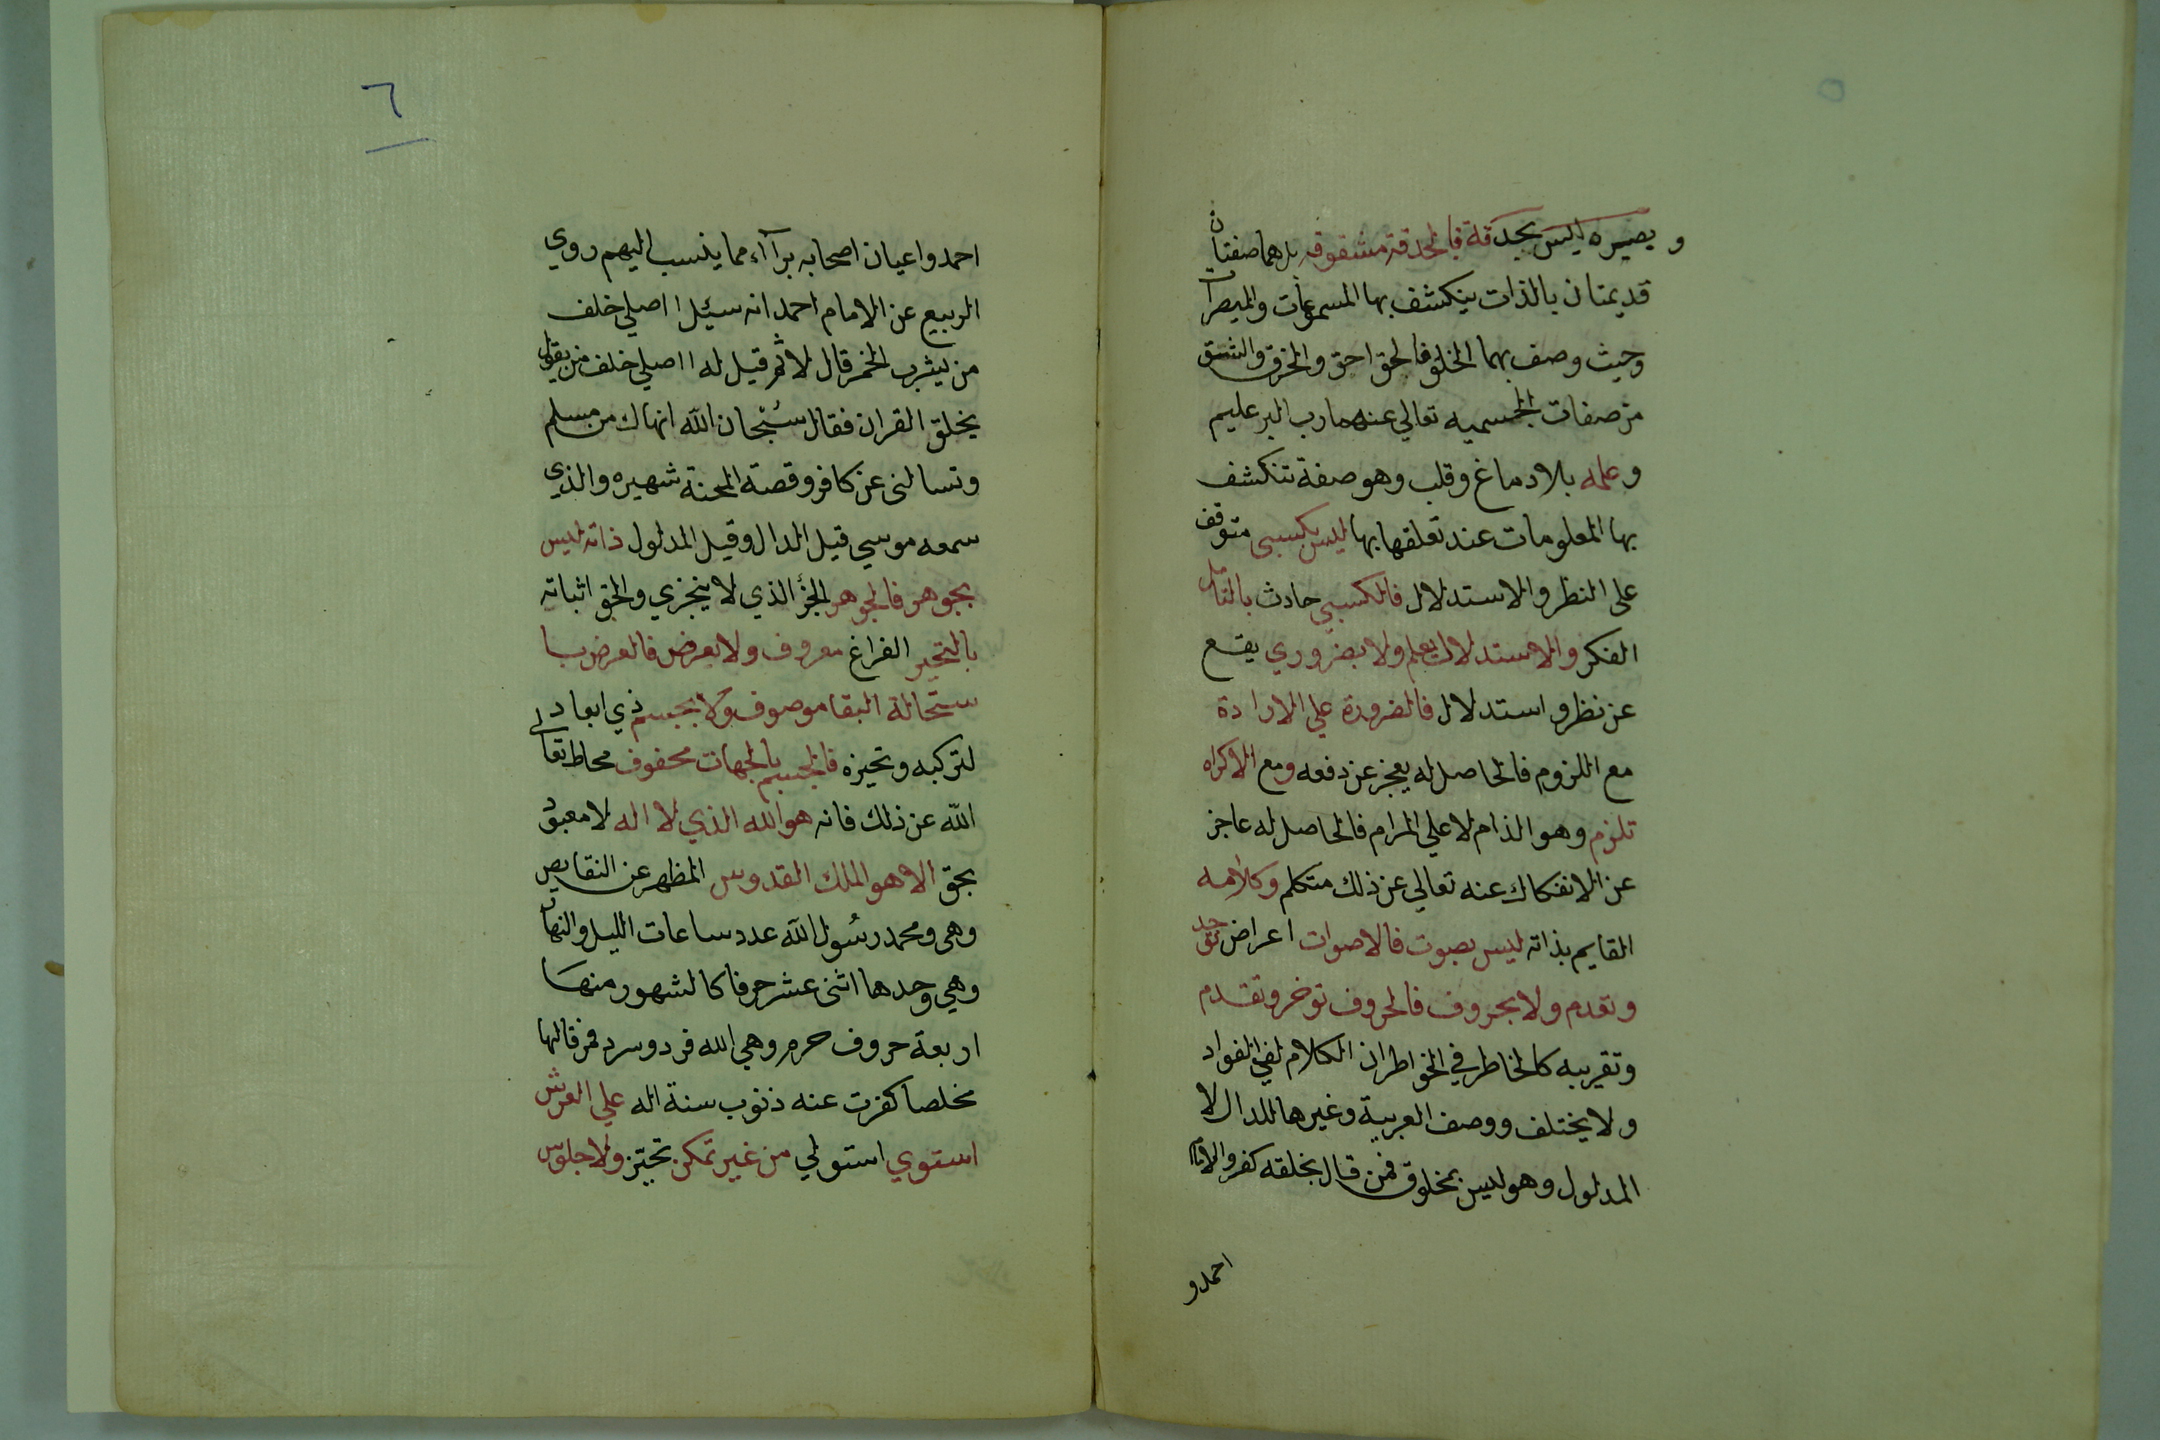 وبصره ليس بحدقة فالحدقة مشقوقه بل هما صفتان
قديمتان بالذات ينكشف بها المسموعات والمبصرات
وحيث وصف بهما الخلق فالحق احق والخرق والشق
من صفات الجسميه تعالي عنهما رب البر عليم
وعلمه بلا دماغ وقلب وهو صفة تنكشف
بها المعلومات عند تعلقها بها ليس بكسبي متوقف
علي النظر والاستدلال فالكسبي حادث بالتامل
الفكر والاستدلال يعلم ولا بضروري يقع
عن نظر واستدلال فالضرورة علي الارادة
مع اللزوم فالحاصل له يعجز عن دفعه ومع الاكراه
تلزم وهو الذام لا علي المرام فالحاصل له عاجز
عن الانفكاك عنه تعالي عن ذلك متكلم وكلامه
القايم بذاته ليس بصوت فالاصوات اعراض توجد
وتعدم ولا بحروف فالحروف توخر وتقدم
وتقريبه كالخاطر في الخواطر ان الكلام لفي الفواد
ولا يختلف ووصف العربية وغيرها للدال لا
المدلول وهو ليس بمخلوق فمن قال بخلقه كفر والامام
احمد و
٦
احمد واعيان اصحابه برآاء مما ينسب اليهم روي
الربيع عن الامام احمد انه سيئل ااصلي خلف
من يشرب الخمر قال لا ثم قيل له ااصلي خلف من يقول
بخلق القران فقال سُبْحان الله انهاك من مسلم
وتسالني عن كافر وقصة المحنة شهيره والذي
سمعه موسي قيل الدال وقيل المدلول ذاته ليس
بجوهر فالجوهر الجزٔ الذي لا يتجزي والحق اثباته
بالتحيز الفراغ معروف ولا بعرض فالعرض با
ستحالة البقا موصوف ولا بجسم ذي ابعاد
لتركبه وتحيزه فالجسم بالجهات محفوف محاط تعالي
الله عن ذلك فانه هو الله الذي لا اله لا معبود
بحق الا هو الملك القدوس المطهر عن النقايص
وهي ومحمد رسُول الله عدد ساعات الليل والنهار
وهي وحدها اثني عشر حرفا كالشهور منها
اربعة حروف حرم وهي الله فرد وسرد فمن قالها
مخلصا كفرت عنه ذنوب سنة اله علي العرش
استوي استولي من غير تمكن تحيّز ولا جلوس